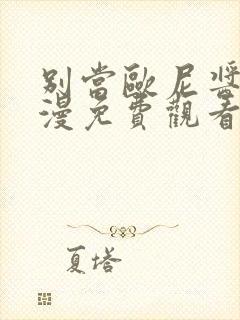 別當歐尼醬
漫免費觀看
夏塔